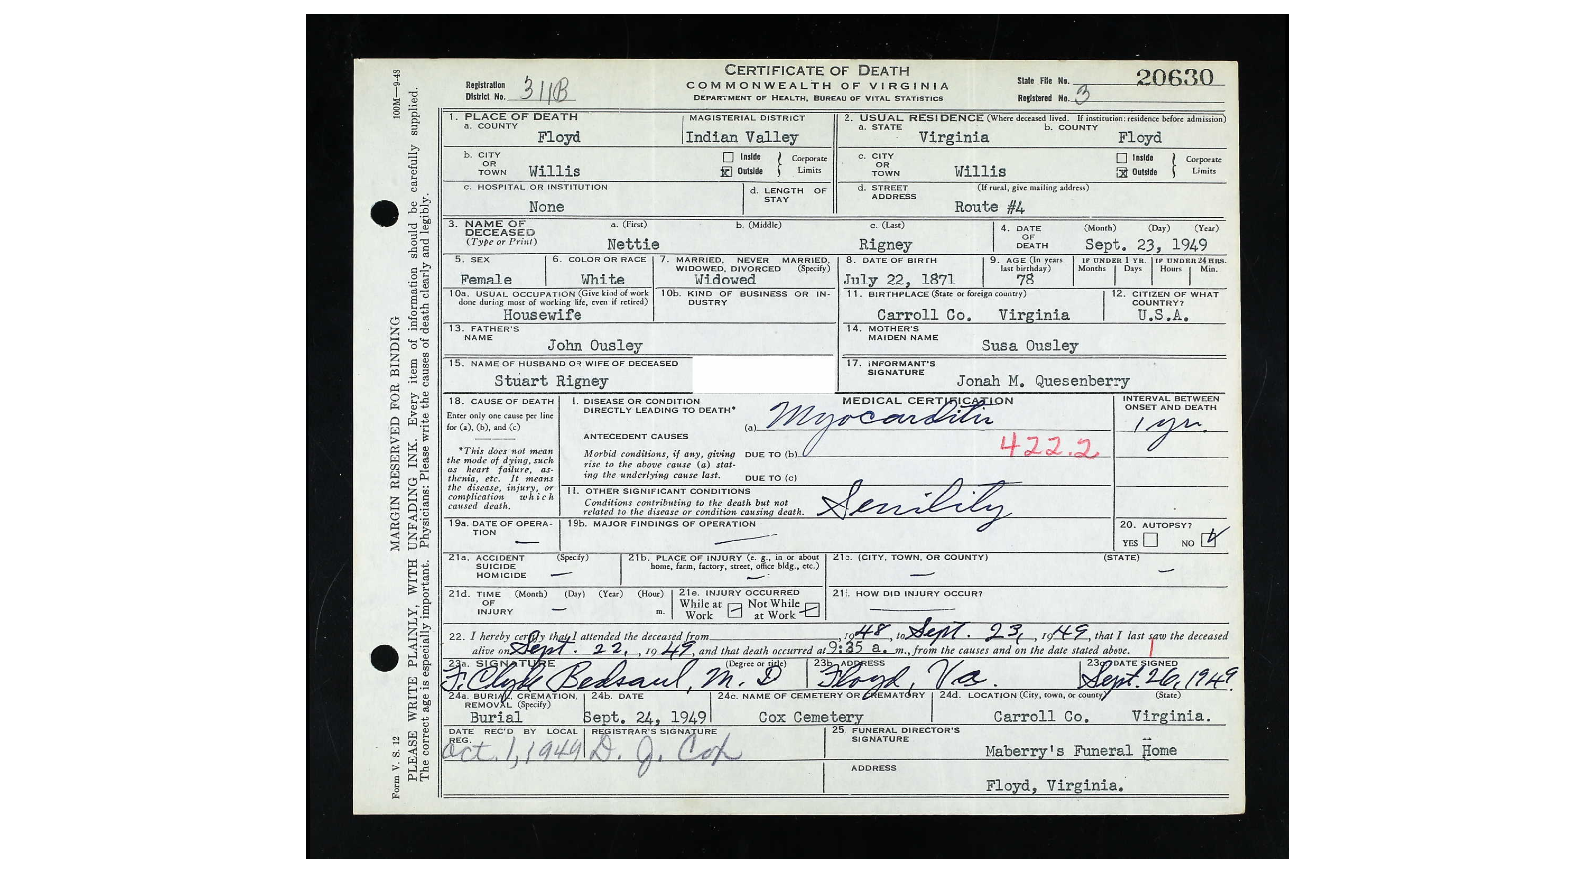 CERTIFICATE OF DEATH
COMMONWEALTH OF VIRGINIA
DEPARTMENT OF HEALTH, BUREAU OF VITAL STATISTICS
Registration District No. 311B
State File No. 20630
Registered No. 3
100M—9-48
MARGIN RESERVED FOR BINDING
PLEASE WRITE PLAINLY, WITH UNFADING INK. Every item of information should be carefully supplied.
The correct age is especially important. Physicians: Please write the causes of death clearly and legibly.
Form V. S. 12
1. PLACE OF DEATH
a. COUNTY Floyd
MAGISTERIAL DISTRICT Indian Valley
2. USUAL RESIDENCE (Where deceased lived. If institution: residence before admission)
a. STATE Virginia b. COUNTY Floyd
b. CITY OR TOWN Willis
Inside Outside Corporate Limits
c. CITY OR TOWN Willis
Inside Outside Corporate Limits
c. HOSPITAL OR INSTITUTION None
d. LENGTH OF STAY
d. STREET ADDRESS (If rural, give mailing address) Route #4
3. NAME OF DECEASED (Type or Print)
a. (First) Nettie b. (Middle) c. (Last) Rigney
4. DATE OF DEATH (Month) (Day) (Year) Sept. 23, 1949
5. SEX Female
6. COLOR OR RACE White
7. MARRIED, NEVER MARRIED, WIDOWED, DIVORCED (Specify) Widowed
8. DATE OF BIRTH July 22, 1871
9. AGE (In years last birthday) 78
IF UNDER 1 YR. Months Days
IF UNDER 24 HRS. Hours Min.
10a. USUAL OCCUPATION (Give kind of work done during most of working life, even if retired) Housewife
10b. KIND OF BUSINESS OR INDUSTRY
11. BIRTHPLACE (State or foreign country) Carroll Co. Virginia
12. CITIZEN OF WHAT COUNTRY? U.S.A.
13. FATHER'S NAME John Ousley
14. MOTHER'S MAIDEN NAME Susa Ousley
15. NAME OF HUSBAND OR WIFE OF DECEASED Stuart Rigney
17. INFORMANT'S SIGNATURE Jonah M. Quesenberry
18. CAUSE OF DEATH
Enter only one cause per line for (a), (b), and (c)
*This does not mean the mode of dying, such as heart failure, asthenia, etc. It means the disease, injury, or complication which caused death.
MEDICAL CERTIFICATION
I. DISEASE OR CONDITION DIRECTLY LEADING TO DEATH* (a) Myocarditis
INTERVAL BETWEEN ONSET AND DEATH 1 yr.
ANTECEDENT CAUSES
Morbid conditions, if any, giving rise to the above cause (a) stating the underlying cause last.
DUE TO (b)
422.2
DUE TO (c)
II. OTHER SIGNIFICANT CONDITIONS
Conditions contributing to the death but not related to the disease or condition causing death. Senility
19a. DATE OF OPERATION —
19b. MAJOR FINDINGS OF OPERATION —
20. AUTOPSY? YES NO
21a. ACCIDENT SUICIDE HOMICIDE (Specify) —
21b. PLACE OF INJURY (e. g., in or about home, farm, factory, street, office bldg., etc.) —
21c. (CITY, TOWN, OR COUNTY) — (STATE) —
21d. TIME OF INJURY (Month) (Day) (Year) (Hour) — m.
21e. INJURY OCCURRED While at Work Not While at Work
21f. HOW DID INJURY OCCUR? —
22. I hereby certify that I attended the deceased from , 1948, to Sept. 23, 1949, that I last saw the deceased
alive on Sept. 22, 1949, and that death occurred at 9:35 a. m., from the causes and on the date stated above.
23a. SIGNATURE (Degree or title) F. Clyde Bedsaul, M. D
23b. ADDRESS Floyd, Va.
23c. DATE SIGNED Sept. 26, 1949
24a. BURIAL, CREMATION, REMOVAL (Specify) Burial
24b. DATE Sept. 24, 1949
24c. NAME OF CEMETERY OR CREMATORY Cox Cemetery
24d. LOCATION (City, town, or county) (State) Carroll Co. Virginia.
DATE REC'D BY LOCAL REG. Oct. 1, 1949
REGISTRAR'S SIGNATURE D. J. Cox
25. FUNERAL DIRECTOR'S SIGNATURE Maberry's Funeral Home
ADDRESS Floyd, Virginia.